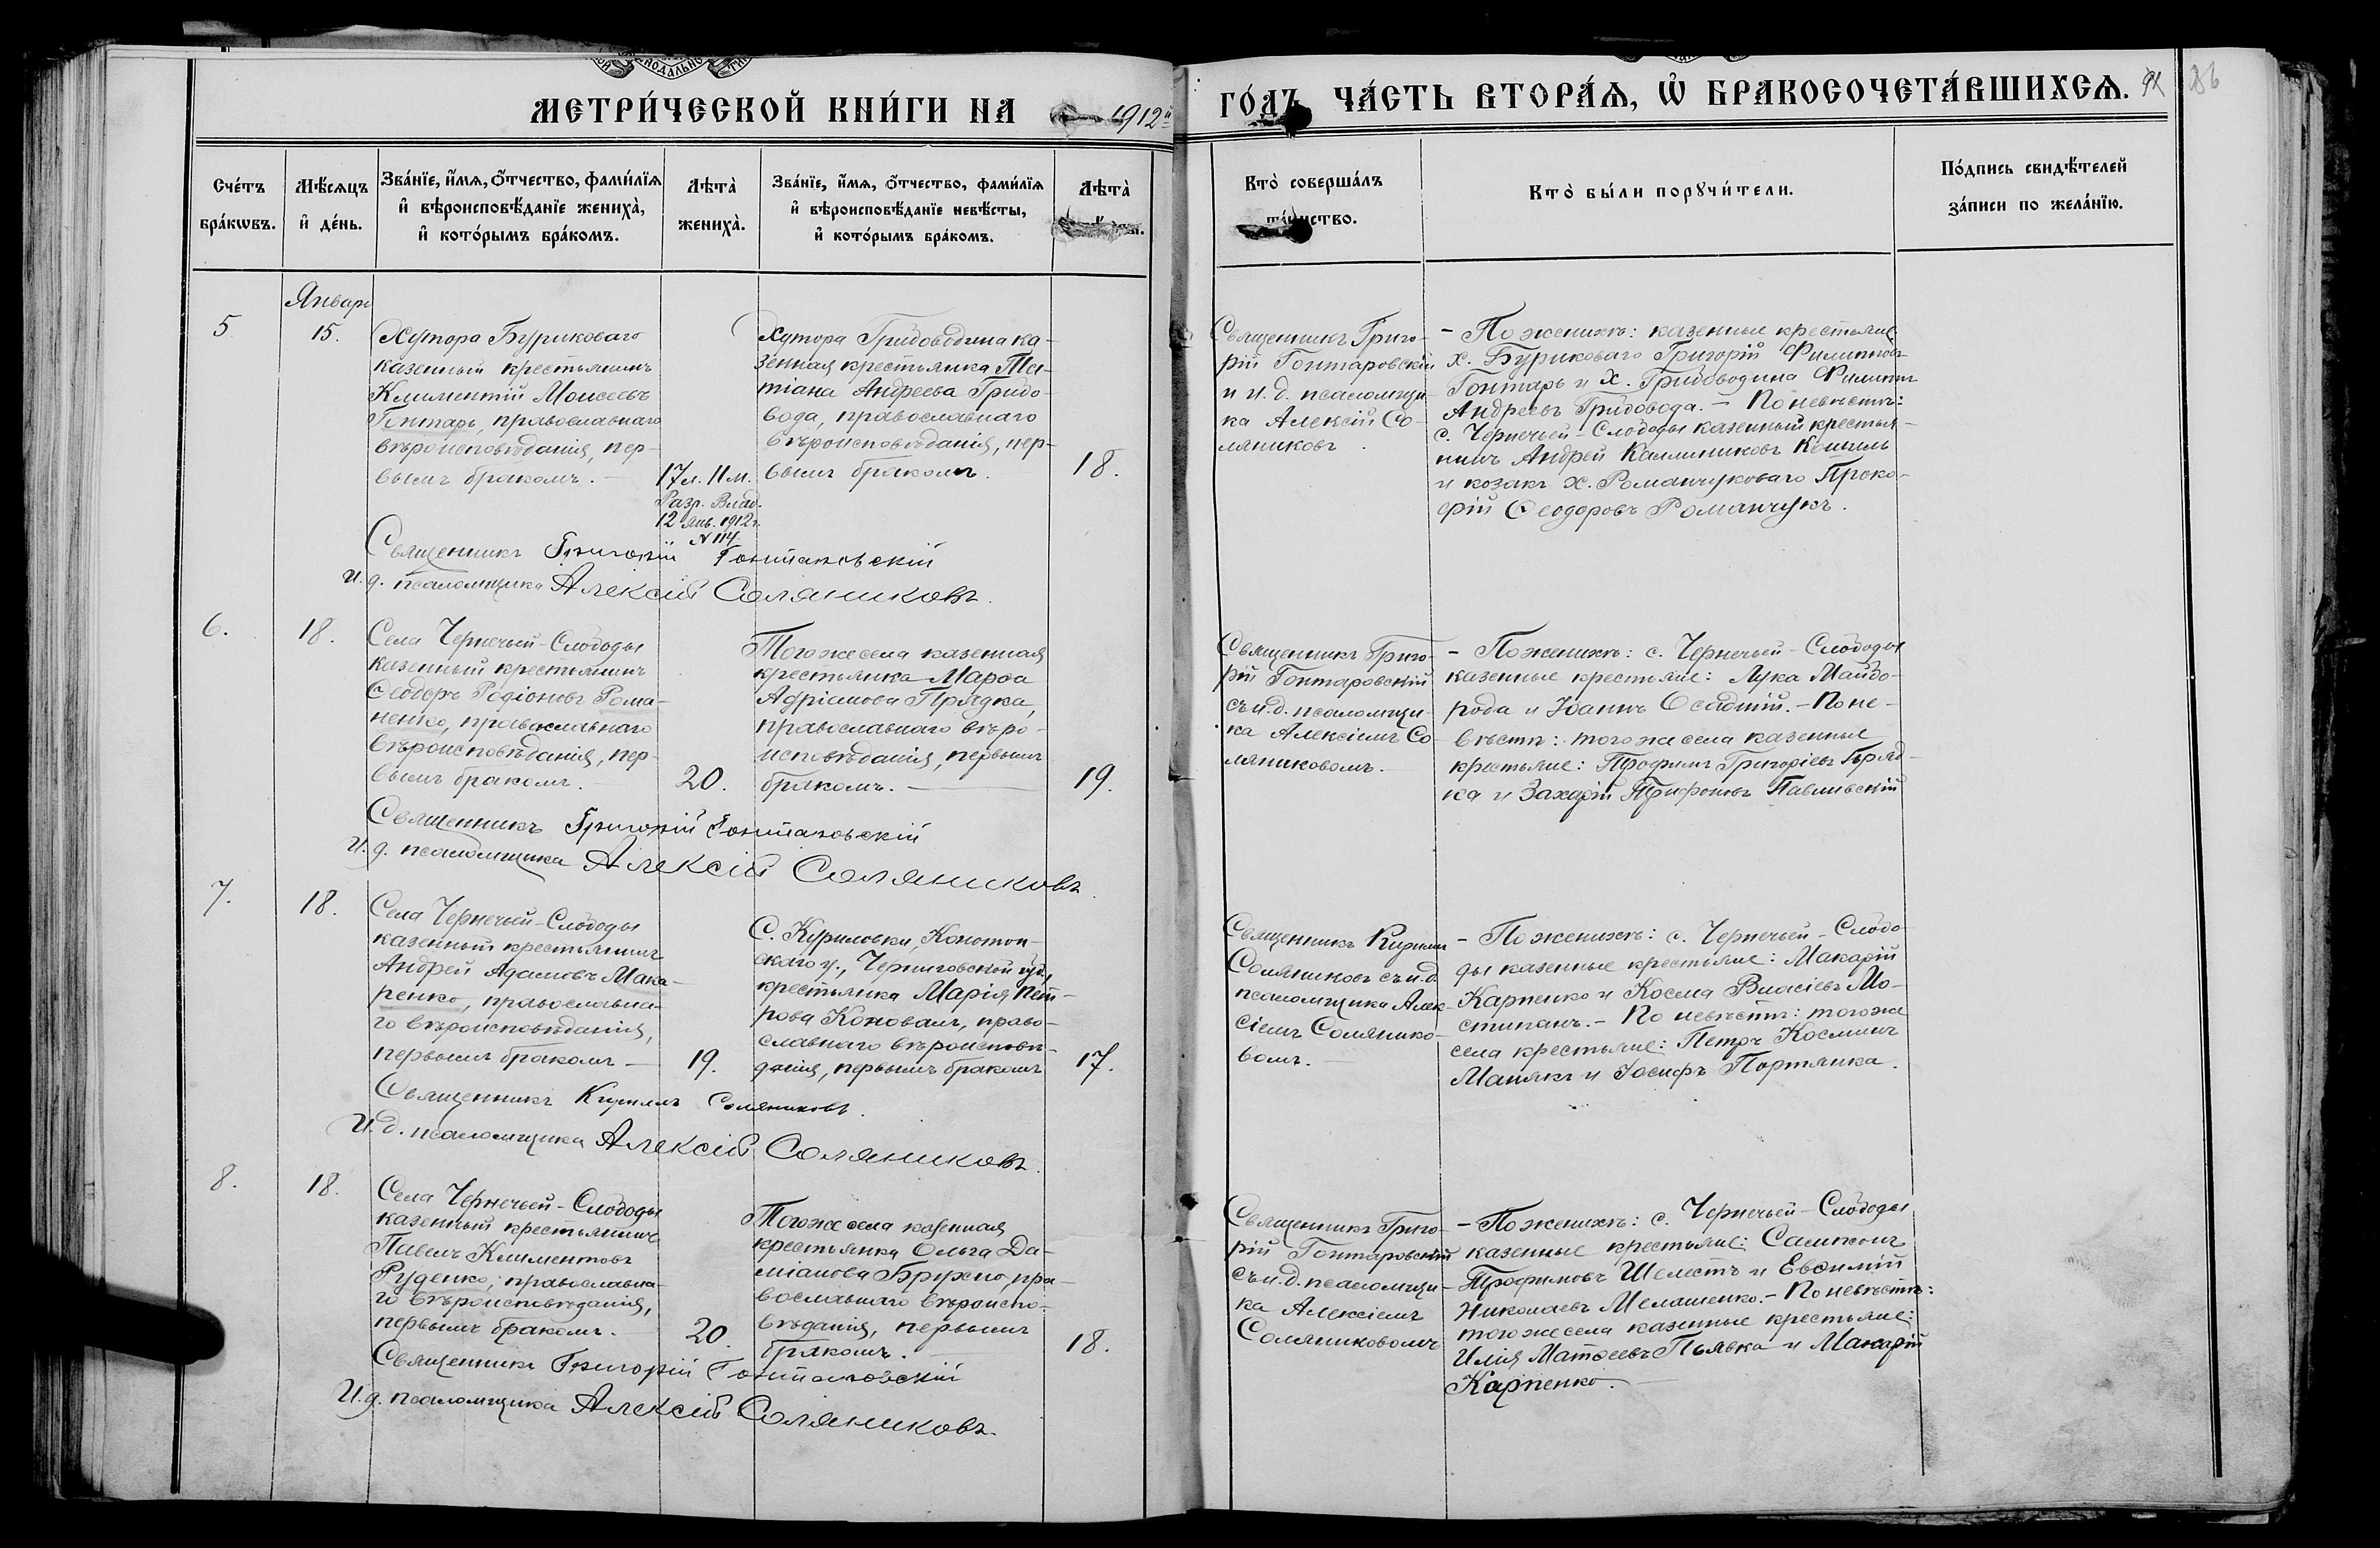 МЕТРИ́ЧЕСКОЙ КНИ́ГИ НА 1912й ГО́ДЪ ЧА́СТЬ ВТОРА́Ѧ, Ѡ҆ БРАКОСОЧЕТА́ВШИХСѦ.
Сче́тъ бра́кѡвъ.
Мѣ́сяцъ и҆ де́нь.
Зва́нїе, и҆́мя, ѻ҆́тчество, фами́лїя
и҆ вѣроисповѣ́данїе жениха̀,
и҆ кото́рымъ бра́комъ.
Лѣта̀
жениха̀.
Зва́нїе, и҆́мя, ѻ҆́тчество, фами́лїя
и҆ вѣроисповѣ́данїе невѣ́сты,
и҆ кото́рымъ бра́комъ.
Лѣта̀
Кто̀ соверша́лъ
та́инство.
Кто̀ бы́ли порꙋчи́тели.
По́дпись свидѣ́телей
за́писи по жела́нїю.
Январь
5
15.
Хутора Буриковаго
казенный крестьянинъ
Климентій Моисеевъ
Гонтарь, православнаго
вѣроисповѣданія, пер-
вымъ бракомъ. —
17 л. 11 м.
Разр. Влад.
12 янв. 1912 г.
N 114
Хутора Гридоводина ка-
зенная крестьянка Та-
тіана Андреева Гридо-
вода, православнаго
вѣроисповѣданія, пер-
вымъ бракомъ.
18.
Священникъ Григо-
рій Гонтаровскій
и и. д. псаломщи-
ка Алексій Со-
ляниковъ.
— По женихѣ: казенные крестьяне
х. Буриковаго Григорій Филипповъ
Гонтарь и х. Гридоводина Филиппъ
Андреевъ Гридовода. — По невѣстѣ:
с. Чернечьей-Слободы казенный крестья-
нинъ Андрей Каллиниковъ Кошиль
и козакъ х. Романчуковаго Проко-
фій Ѳеодоровъ Романчукъ.
Священникъ Григорій Гонтаровскій
И. д. псаломщика Алексій Соляниковъ.
6.
18.
Села Чернечьей-Слободы
казенный крестьянинъ
Ѳеодоръ Родіоновъ Рома-
ненко, православнаго
вѣроисповѣданія, пер-
вымъ бракомъ. —
20.
Того же села казенная
крестьянка Марѳа
Адріанова Прядка,
православнаго вѣро-
исповѣданія, первымъ
бракомъ. —
19.
Священникъ Григо-
рій Гонтаровскій
съ и. д. псаломщи-
ка Алексіемъ Со-
ляниковомъ.
— По женихѣ: с. Чернечьей-Слободы
казенные крестьяне: Лука Майбо-
рода и Іоаннъ Осадчій. — По не-
вѣстѣ: того же села казенные
крестьяне: Трофимъ Григоріевъ Пряд-
ка и Захарій Трифоновъ Павлинскій
Священникъ Григорій Гонтаровскій
И. д. псаломщика Алексій Соляниковъ.
7.
18.
Села Чернечьей-Слободы
казенный крестьянинъ
Андрей Адамовъ Мака-
ренко, православна-
го вѣроисповѣданія,
первымъ бракомъ —
19.
С. Куриловки, Конотоп-
скаго у., Черниговской губ.,
крестьянка Марія Пет-
рова Коновалъ, право-
славнаго вѣроисповѣ-
данія, первымъ бракомъ
17.
Священникъ Кириллъ
Соляниковъ съ и. д.
псаломщика Алек-
сіемъ Солянико-
вомъ.
— По женихѣ: с. Чернечьей-Слобо-
ды казенные крестьяне: Макарій
Карпенко и Косма Власіевъ Мо-
стипанъ. — По невѣстѣ: того же
села крестьяне: Петръ Косминъ
Матякъ и Іосифъ Портянка.
Священникъ Кириллъ Соляниковъ.
И. д. псаломщика Алексій Соляниковъ.
8.
18.
Села Чернечьей-Слободы
казенный крестьянинъ
Павелъ Климентовъ
Руденко, православна-
го вѣроисповѣданія,
первымъ бракомъ.
20.
Того же села казенная
крестьянка Ольга Да-
міанова Бружно, пра-
вославнаго вѣроиспо-
вѣданія, первымъ
бракомъ. —
18.
Священникъ Григо-
рій Гонтаровскій
съ и. д. псаломщи-
ка Алексіемъ
Соляниковомъ
— По женихѣ: с. Чернечьей-Слободы
казенные крестьяне: Сампсонъ
Трофимовъ Шелестъ и Евѳимій
Николаевъ Мелашенко. — По невѣстѣ:
того же села казенные крестьяне:
Илія Матѳеевъ Пьявка и Макарій
Карпенко. —
Священникъ Григорій Гонтаровскій
И. д. псаломщика Алексій Соляниковъ.